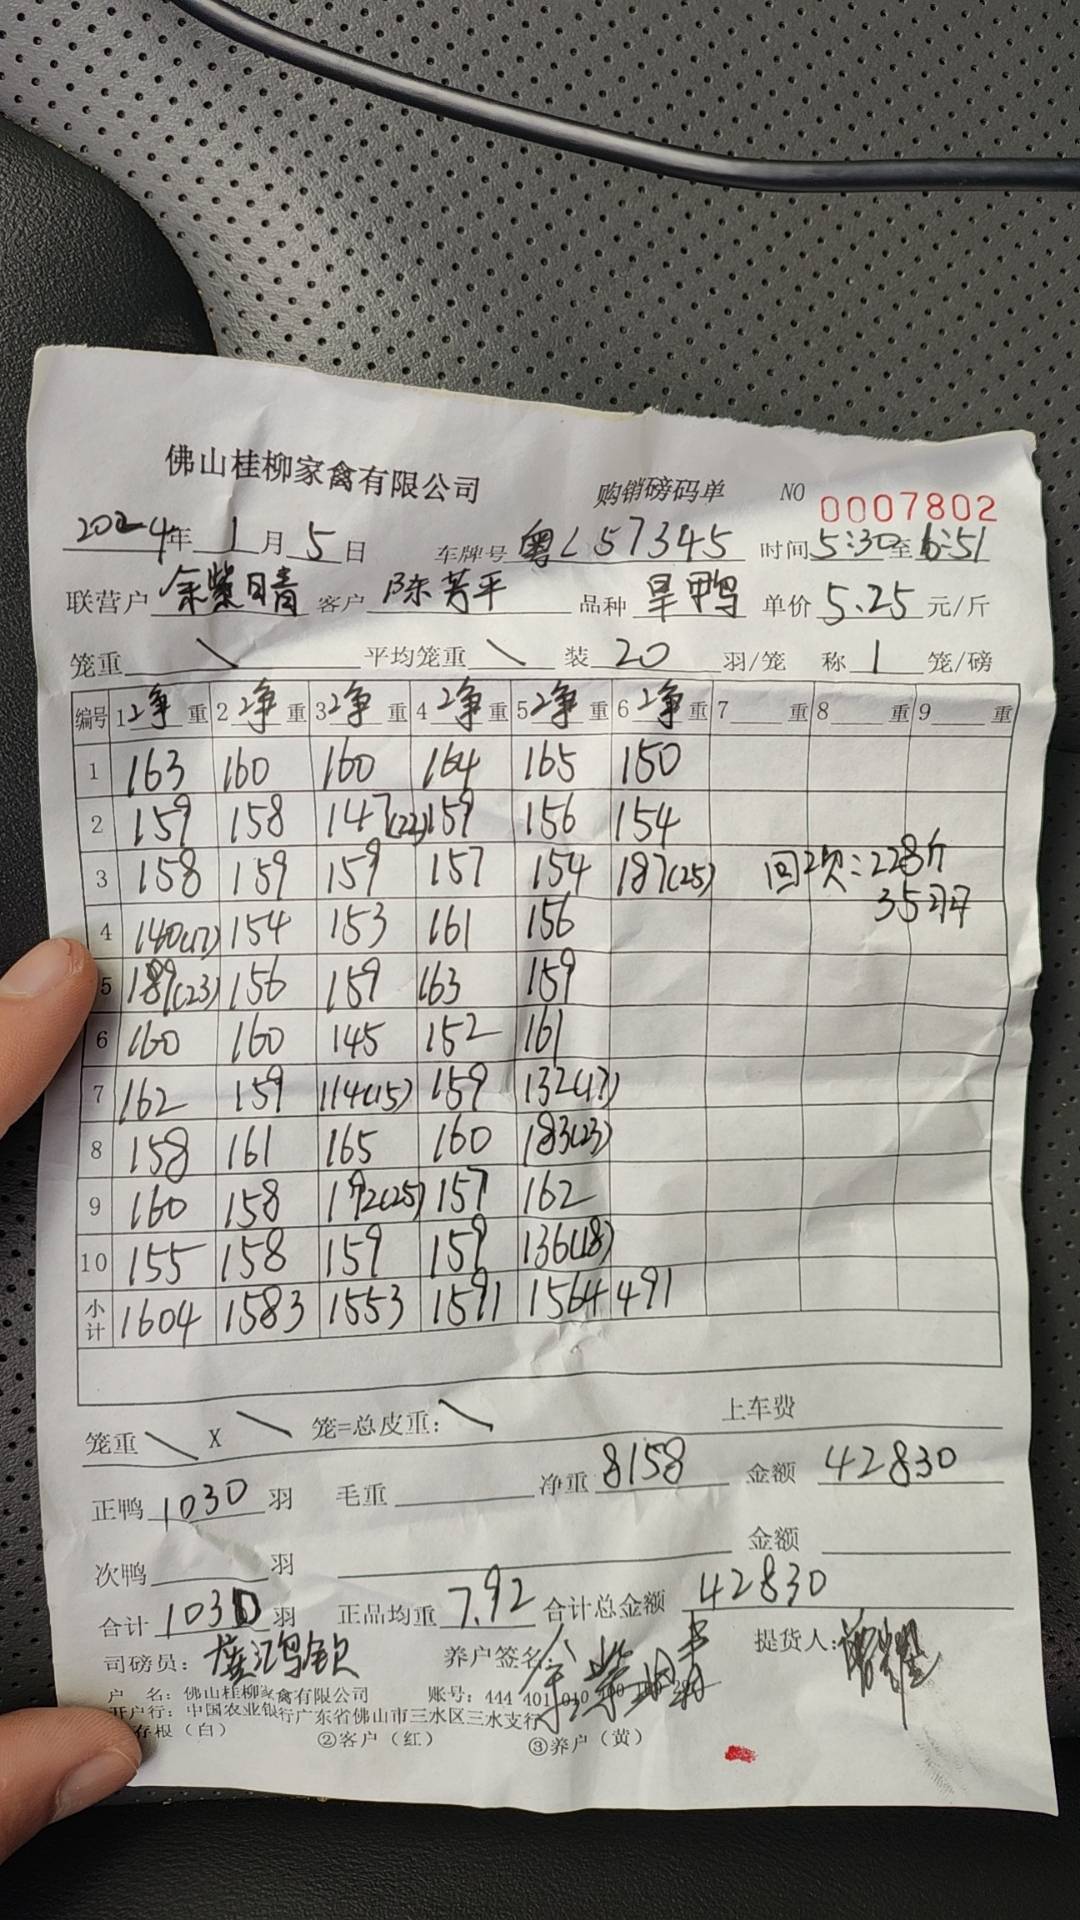 佛山桂柳家禽有限公司 购销磅码单 NO 0007802
2024年 1月 5日 车牌号 粤L57345 时间 5:30至6:51
联营户 余紫晴 客户 陈芳平 品种 旱鸭 单价 5.25 元/斤
笼重 \ 平均笼重 \ 装 20 羽/笼 称 1 笼/磅
编号 1净重 2净重 3净重 4净重 5净重 6净重 7 重 8 重 9 重
1 163 160 160 164 165 150
2 159 158 147(22) 159 156 154
3 158 159 159 157 154 187(25) 回次:228斤
35羽
4 140(17) 154 153 161 156
5 189(23) 156 159 163 159
6 160 160 145 152 161
7 162 159 114(15) 159 132(17)
8 158 161 165 160 183(23)
9 160 158 192(25) 157 162
10 155 158 159 159 136(18)
小计 1604 1583 1553 1591 1564 491
笼重 \ X \ 笼=总皮重: \ 上车费
正鸭 1030 羽 毛重 净重 8158 金额 42830
次鸭 羽 金额
合计 1030 羽 正品均重 7.92 合计总金额 42830
司磅员: 鸿钦 养户签名: 余紫晴 提货人:
户 名: 佛山桂柳家禽有限公司 账号: 444 401 010
开户行: 中国农业银行广东省佛山市三水区三水支行
存根(白) ②客户(红) ③养户(黄)